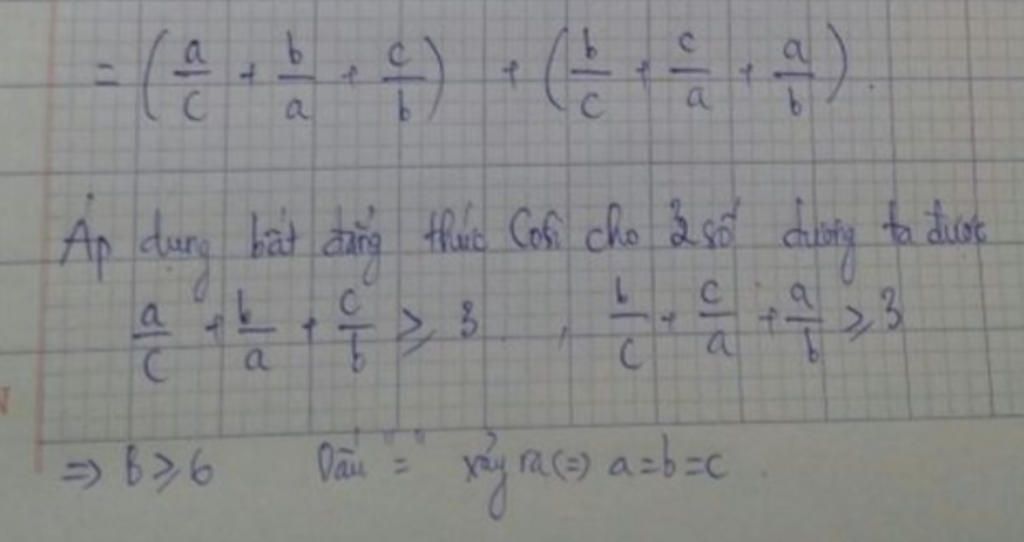 = (a/c + b/a + c/b) + (b/c + c/a + a/b).
Áp dụng bất đẳng thức Côsi cho 3 số dương ta được
a/c + b/a + c/b ≥ 3, b/c + c/a + a/b ≥ 3
=> B ≥ 6 Dấu "=" xảy ra (=) a=b=c.